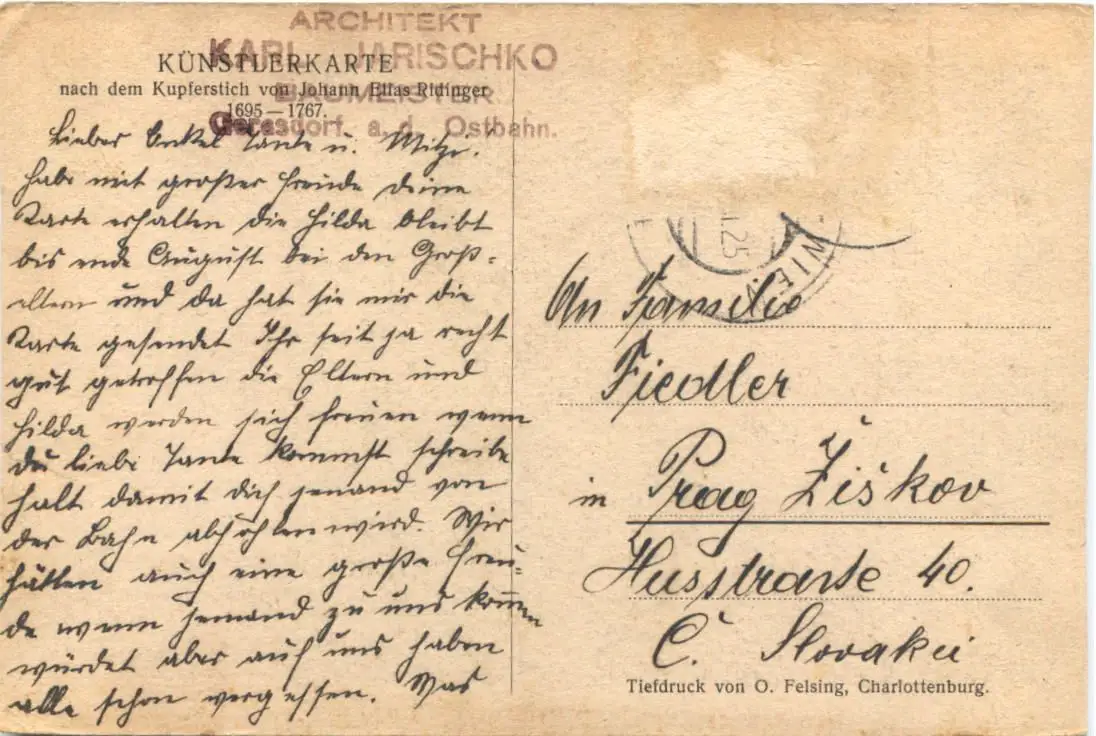 ARCHITEKT
KARL JARISCHKO
BAUMEISTER
Gerasdorf a. d. Ostbahn.
KÜNSTLERKARTE
nach dem Kupferstich von Johann Elias Ridinger
1695—1767.
Lieber Onkel Tante u. Mitzi.
habe mit großer Freude deine
Karte erhalten die Hilda bleibt
bis ende August bei den Groß-
eltern und da hat sie mir die
Karte gesendet Ihr seit ja recht
gut getroffen die Eltern und
Hilda werden sich freuen wenn
du liebe Tante kommst schreibe
halt damit dich jemand von
der Bahn abhohlen wird. Wir
hätten auch eine große Freu-
de wenn jemand zu uns kommen
würdet aber auf uns haben
alle schon vergessen. Was
25
WIEN
An Familie
Fiedler
in Prag Žiškov
Husstrasse 40.
Č. Slovakei
Tiefdruck von O. Felsing, Charlottenburg.